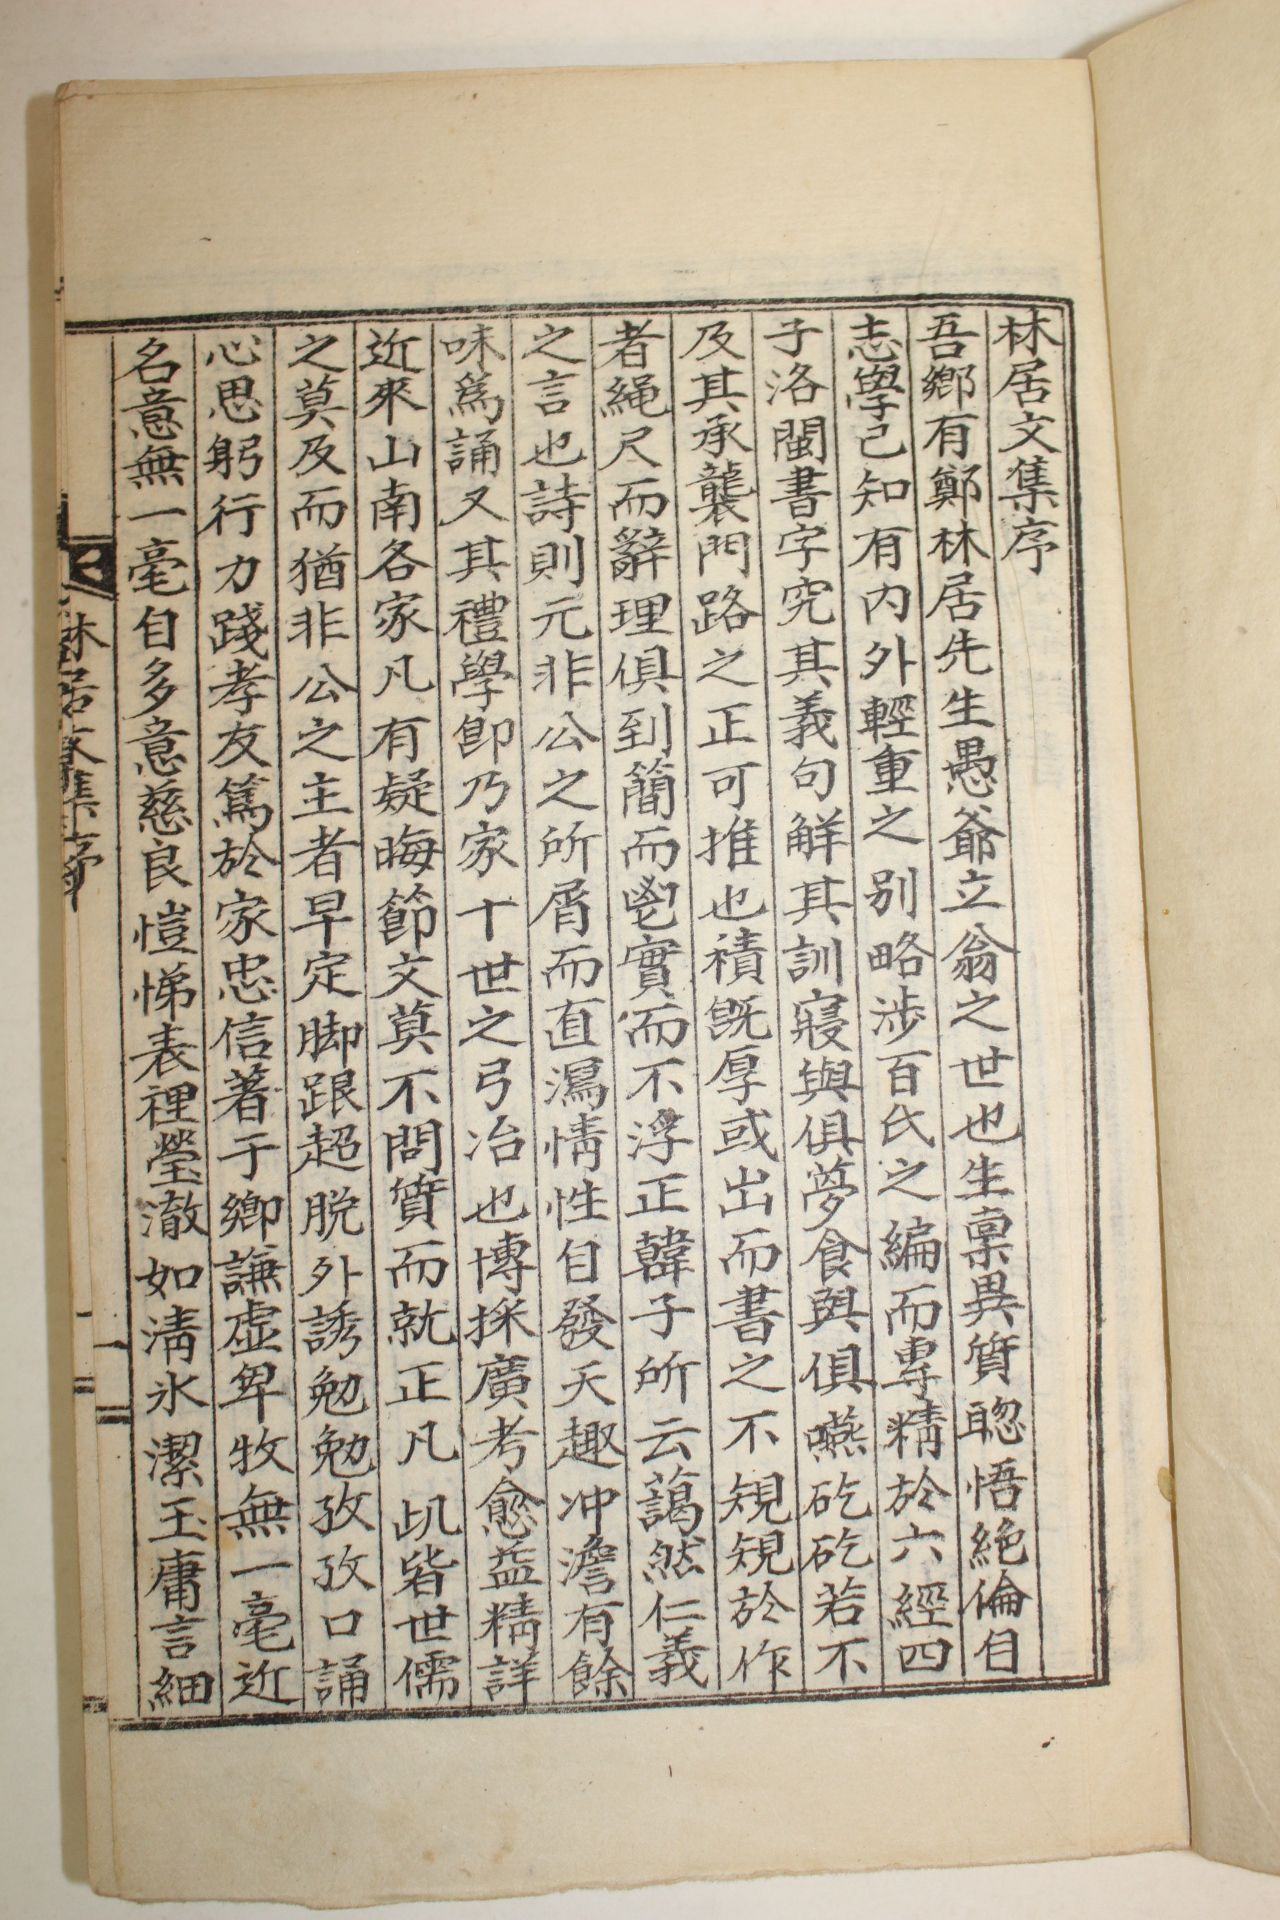 林居文集序
吾鄕有鄭林居先生愚爺立翁之世也生稟異質聦悟絶倫自
志學己知有內外輕重之別略涉百氏之編而專精於六經四
子洛閩書字究其義句觧其訓寢與俱夢食與俱嚥矻矻若不
及其承襲門路之正可推也積旣厚或出而書之不規規於作
者繩尺而辭理俱到簡而鬯實而不浮正韓子所云藹然仁義
之言也詩則元非公之所屑而直瀉情性自發天趣冲澹有餘
味爲誦又其禮學卽乃家十世之弓冶也博採廣考愈益精詳
近來山南各家凡有疑晦節文莫不問質而就正凡此皆世儒
之莫及而猶非公之主者早定脚跟超脫外誘勉勉孜孜口誦
心思躬行力踐孝友篤於家忠信著于鄕謙虛卑牧無一毫近
名意無一毫自多意慈良愷悌表裡瑩澈如淸氷潔玉庸言細
林居文集序
一